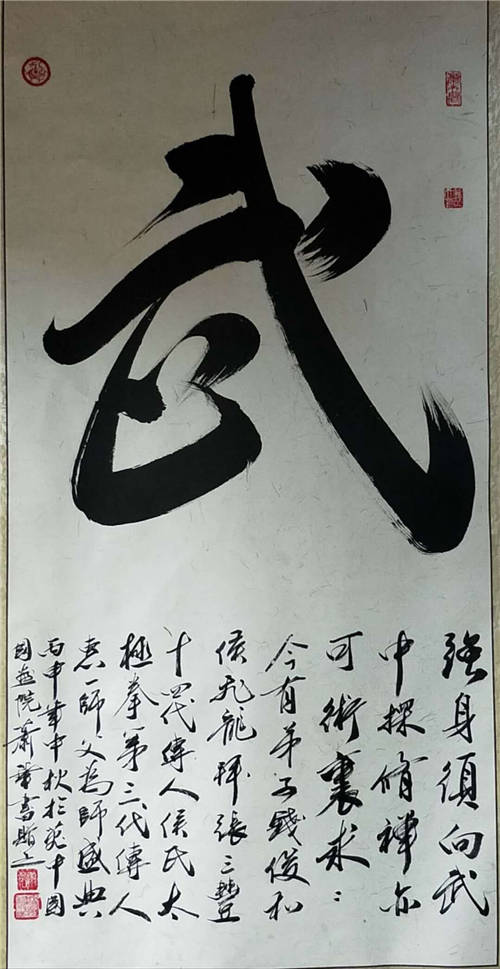 武
强身須向武
中探脩禪亦
可術裏求
今有弟子錢俊和
侯飛龍拜張三豐
十四代傳人侯氏太
極拳第三代傳人
一師父為師盛典
丙申年中秋於中國
國院蕭書